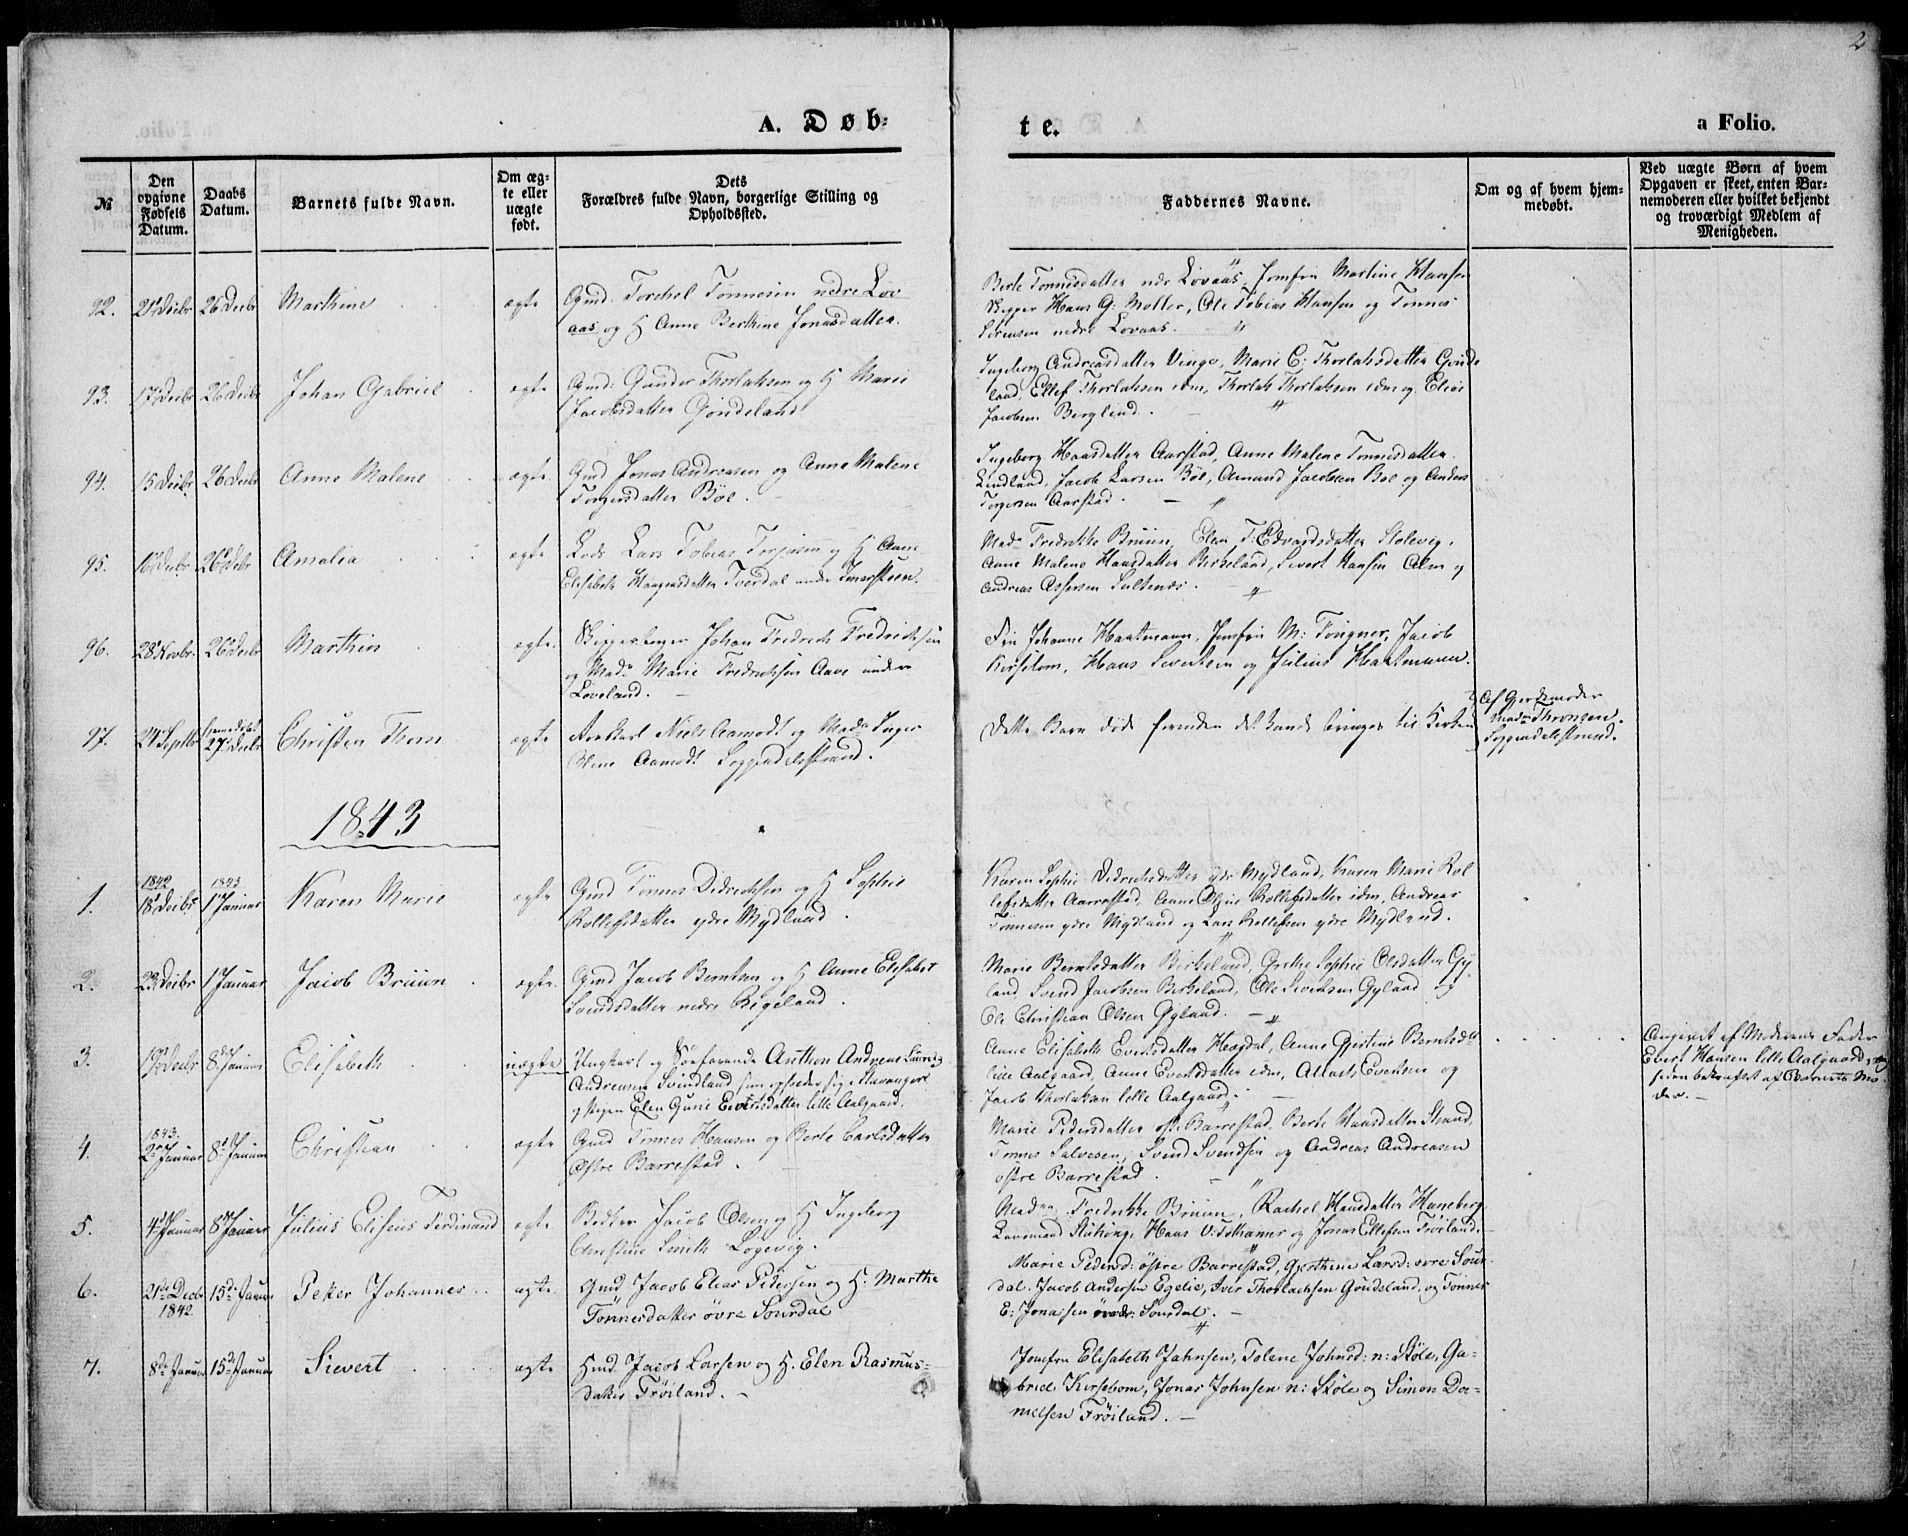 2
A. Døb=
te.
a Folio.
№
Den opgivne Fødsels Datum.
Daabs Datum.
Barnets fulde Navn.
Om ægte eller uægte født.
Dets Forældres fulde Navn, borgerlige Stilling og Opholdssted.
Faddernes Navne.
Om og af hvem hjemmedøbt.
Ved uægte Børn af hvem Opgaven er skeet, enten Barnemoderen eller hvilket bekjendt og troværdigt Medlem af Menigheden.
92. 21 Decbr 26 Decbr Marthine ægte
Gmd. Torchel Tønnesen nedre Løv
aas og H Anne Berthine Jonasdatter.
Berte Tønnesdatter nedr Lovaas, Jomfru Martine Hansen
Skipper Hans G: Moller, Ole Tobias Hansen og Tønnes
Sørensen nedre Lovaas.
93. 17 Decbr 26 Decbr Johan Gabriel ægte
Gmd: Gunder Thorlaksen og H Marie
Jacobsdatter Gyndeland
Ingeborg Andreasdatter Vinge, Marie C: Thorlaksdatter Gønde
land, Ellef Thorlaksen idm, Thorlak Thorlaksen idm og Elias
Jacobsen Berglind.
94. 15 Decbr 26 Decbr Anne Malene ægte
Gmd Jonas Andreasen og Anne Malene
Torgersdatter Böe.
Ingeborg Hansdatter Aarstad, Anne Malene Tønnesdatter
Lindland, Jacob Larsen Böe, Amund Jacobsen Boe og Anders
Torgersen Aarstad.
95. 16 Decbr 26 Decbr Amalia ægte
Lods Lars Tobias Torjusen og H Anne
Elisabeth Haagensdatter Tverdal under Immersteen.
Mad. Fredrikke Bruun, Elen T: Edvardsdatter Stolevig,
Anne Malene Hansdatter Birkeland, Sivert Hansen Alm og
Andreas Assersen Saltenes.
96. 28 Novbr. 26 Decbr Marthin ægte.
Johan Fredrich Fredrichsen
og Mad. Marie Fredrichsen Aave under
Løveland.
Frø Johanne Haatmann, Jomfru M: Tongner, Jacob
Kirsebom, Hans Sivertsen og Julius Haatmann.
97. 21 Septbr fremdstil 27 Decbr Christen Thom ægte
Niels Aamodt og Mad. Inger
Oline Aamodt Soggendalsstrand.
Dette Barn døde forinden det kunde bringes til Kirken
Af Gjordemoder
Mad. Thronsen.
Soggendalsstrand.
1843
1. 1842 18 Decbr 1843 1 Januar Karen Marie ægte
Gmd Tønnes Didrichsen og H Sophie
Rollefsdatter ydre Mydland.
Karen Sophie Didrichsdatter ydr Mydland, Karen Marie Rol
lefsdatter Aarrestad, Anne Oline Rollefsdatter idm, Andreas
Tønnesen ydre Mydland og Lars Rollefsen ydre Mydland.
2. 23 Decbr 1 Januar Jacob Bruun ægte.
Gmd Jacob Berntsen og H Anne Elisabet
Svendsdatter nedre Regeland.
Marie Berntsdatter Birkeland, Grethe Sophie Olsdatter Gy
land, Svend Jacobsen Birkeland, Ole Sivertsen Gyland og
Ole Christian Olsen Gyland.
3. 19 Decbr 8 Januar Elisabeth uægte
Ungkarl og Søefarende Anthon Andreas Lauritz
Andreasen Svindland som opholder sig i Stavanger
og Pigen Elen Gurie Evertsdatter lille Aalgaard.
Anne Elisabeth Evertsdatter Hægdal, Anne Gjertine Berntsd
lille Aalgaard, Anne Evertsdatter idm, Attack Evertsen og
Jacob Thorlaksen lille Aalgaard.
Angivet af Moderens Fader
Evert Hansen lille Aalgaard, og
siden bekræftet af Barnets Mo-
der.
4. 1843. 2 Januar 8 Januar Christian ægte
Gmd Tønnes Hansen og Berte Carlsdatter
Østre Barrestad.
Marie Pedersdatter øst. Barrestad, Berte Hansdatter Strand,
Tønnes Salvesen, Svend Svendsen og Andreas Andreasen
østre Barrestad.
5. 4 Januar 8 Januar Julius Elisæus Ferdinand ægte
Bødker Jacob Olsen og H Ingeborg
Christine Smith Logevig.
Mad. Fredrikke Bruun, Rachel Hansdatter Haneberg,
Hans V: Johanner og Jonas Ellefsen Frøiland.
6. 21de Decbr 1842. 15de Januar Peter Johannes ægte
Gmd Jacob Elias Pedersen og H. Marthe
Tønnesdatter øvre Sourdal
Marie Pedersd: østre Barrestad, Gjerthine Larsd: øvre Sour
dal, Jacob Andersen Egelie, Iver Thorlachsen Gøndeland, og Tønnes
E: Jonassen øvre Sourdal.
7. 8de Januar 15de Januar Sievert ægte
Hmd. Jacob Larsen og H. Elen Rasmus-
datter Frøiland.
Jomfru Elisabeth Jahnsen, Tolene Johnsd: n: Støle, Ga-
briel Kirsebom, Jonas Johnsen n: Støle og Simon Da-
nielsen Frøiland.